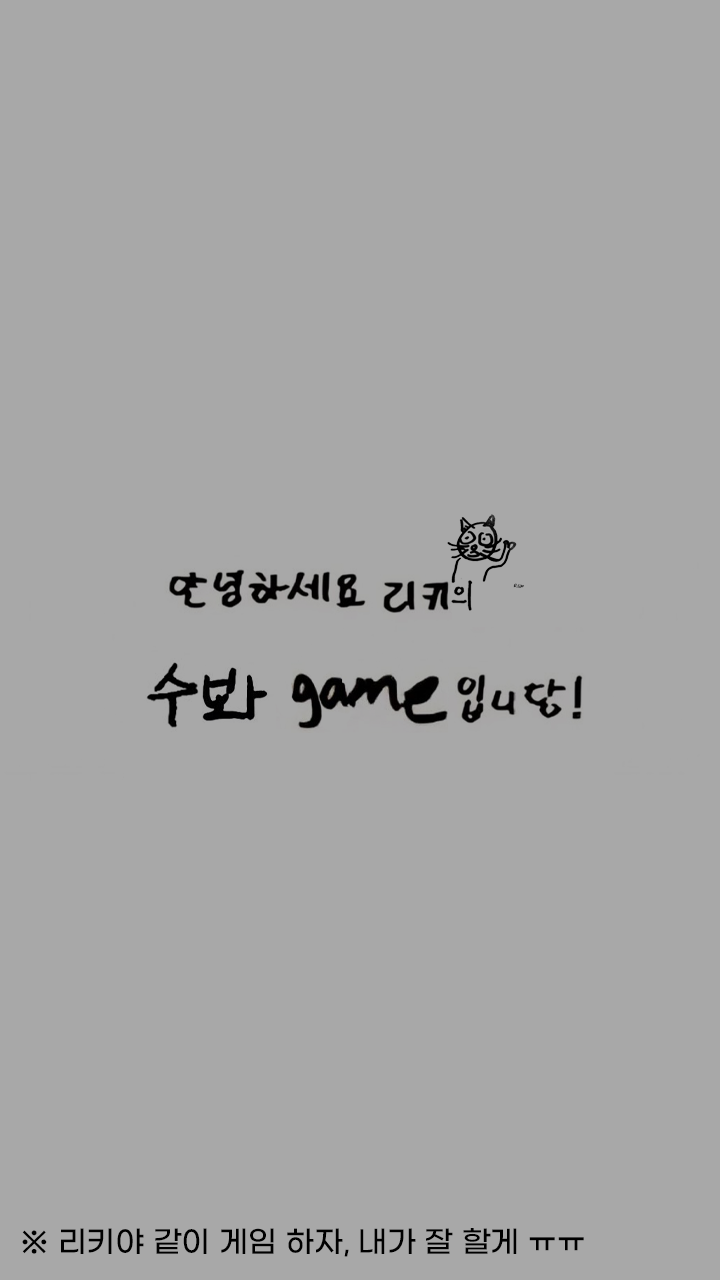 안녕하세요 리키의
수봐 game입니당!
※ 리키야 같이 게임 하자, 내가 잘 할게 ㅠㅠ